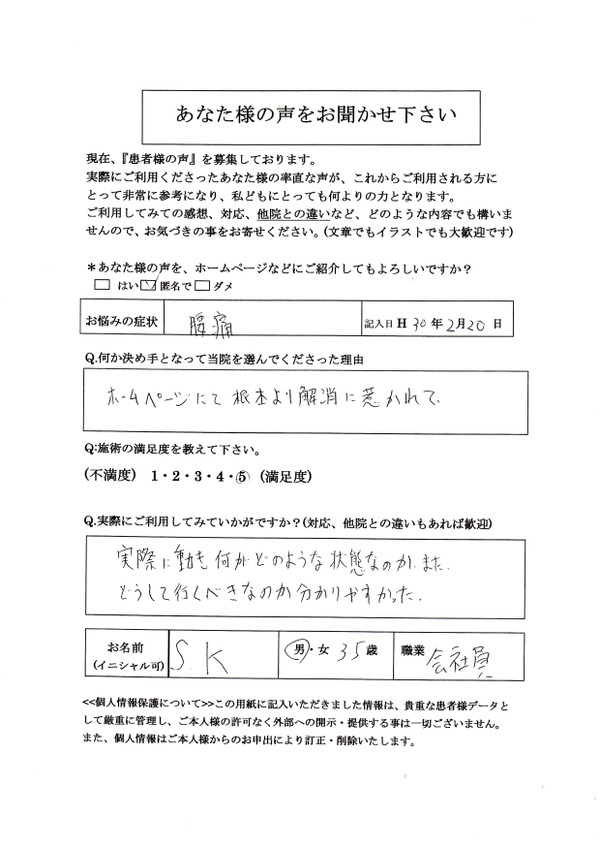 あなた様の声をお聞かせ下さい
現在、『患者様の声』を募集しております。
実際にご利用くださったあなた様の率直な声が、これからご利用される方に
とって非常に参考になり、私どもにとっても何よりの力となります。
ご利用してみての感想、対応、他院との違いなど、どのような内容でも構いま
せんので、お気づきの事をお寄せください。(文章でもイラストでも大歓迎です)
*あなた様の声を、ホームページなどにご紹介してもよろしいですか?
□ はい ☑ 匿名で □ ダメ
お悩みの症状 腰痛 記入日 H 30 年 2月 20 日
Q.何か決め手となって当院を選んでくださった理由
ホームページにて根本より解消に惹かれて
Q:施術の満足度を教えて下さい。
(不満度) 1・2・3・4・⑤ (満足度)
Q.実際にご利用してみていかがですか?(対応、他院との違いもあれば歓迎)
実際に動き何がどのような状態なのか、また、
どうして行くべきなのか分かりやすかった。
お名前 S.K 男・女 35歳 職業 会社員
(イニシャル可)
<<個人情報保護について>>この用紙に記入いただきました情報は、貴重な患者様データと
して厳重に管理し、ご本人様の許可なく外部への開示・提供する事は一切ございません。
また、個人情報はご本人様からのお申出により訂正・削除いたします。